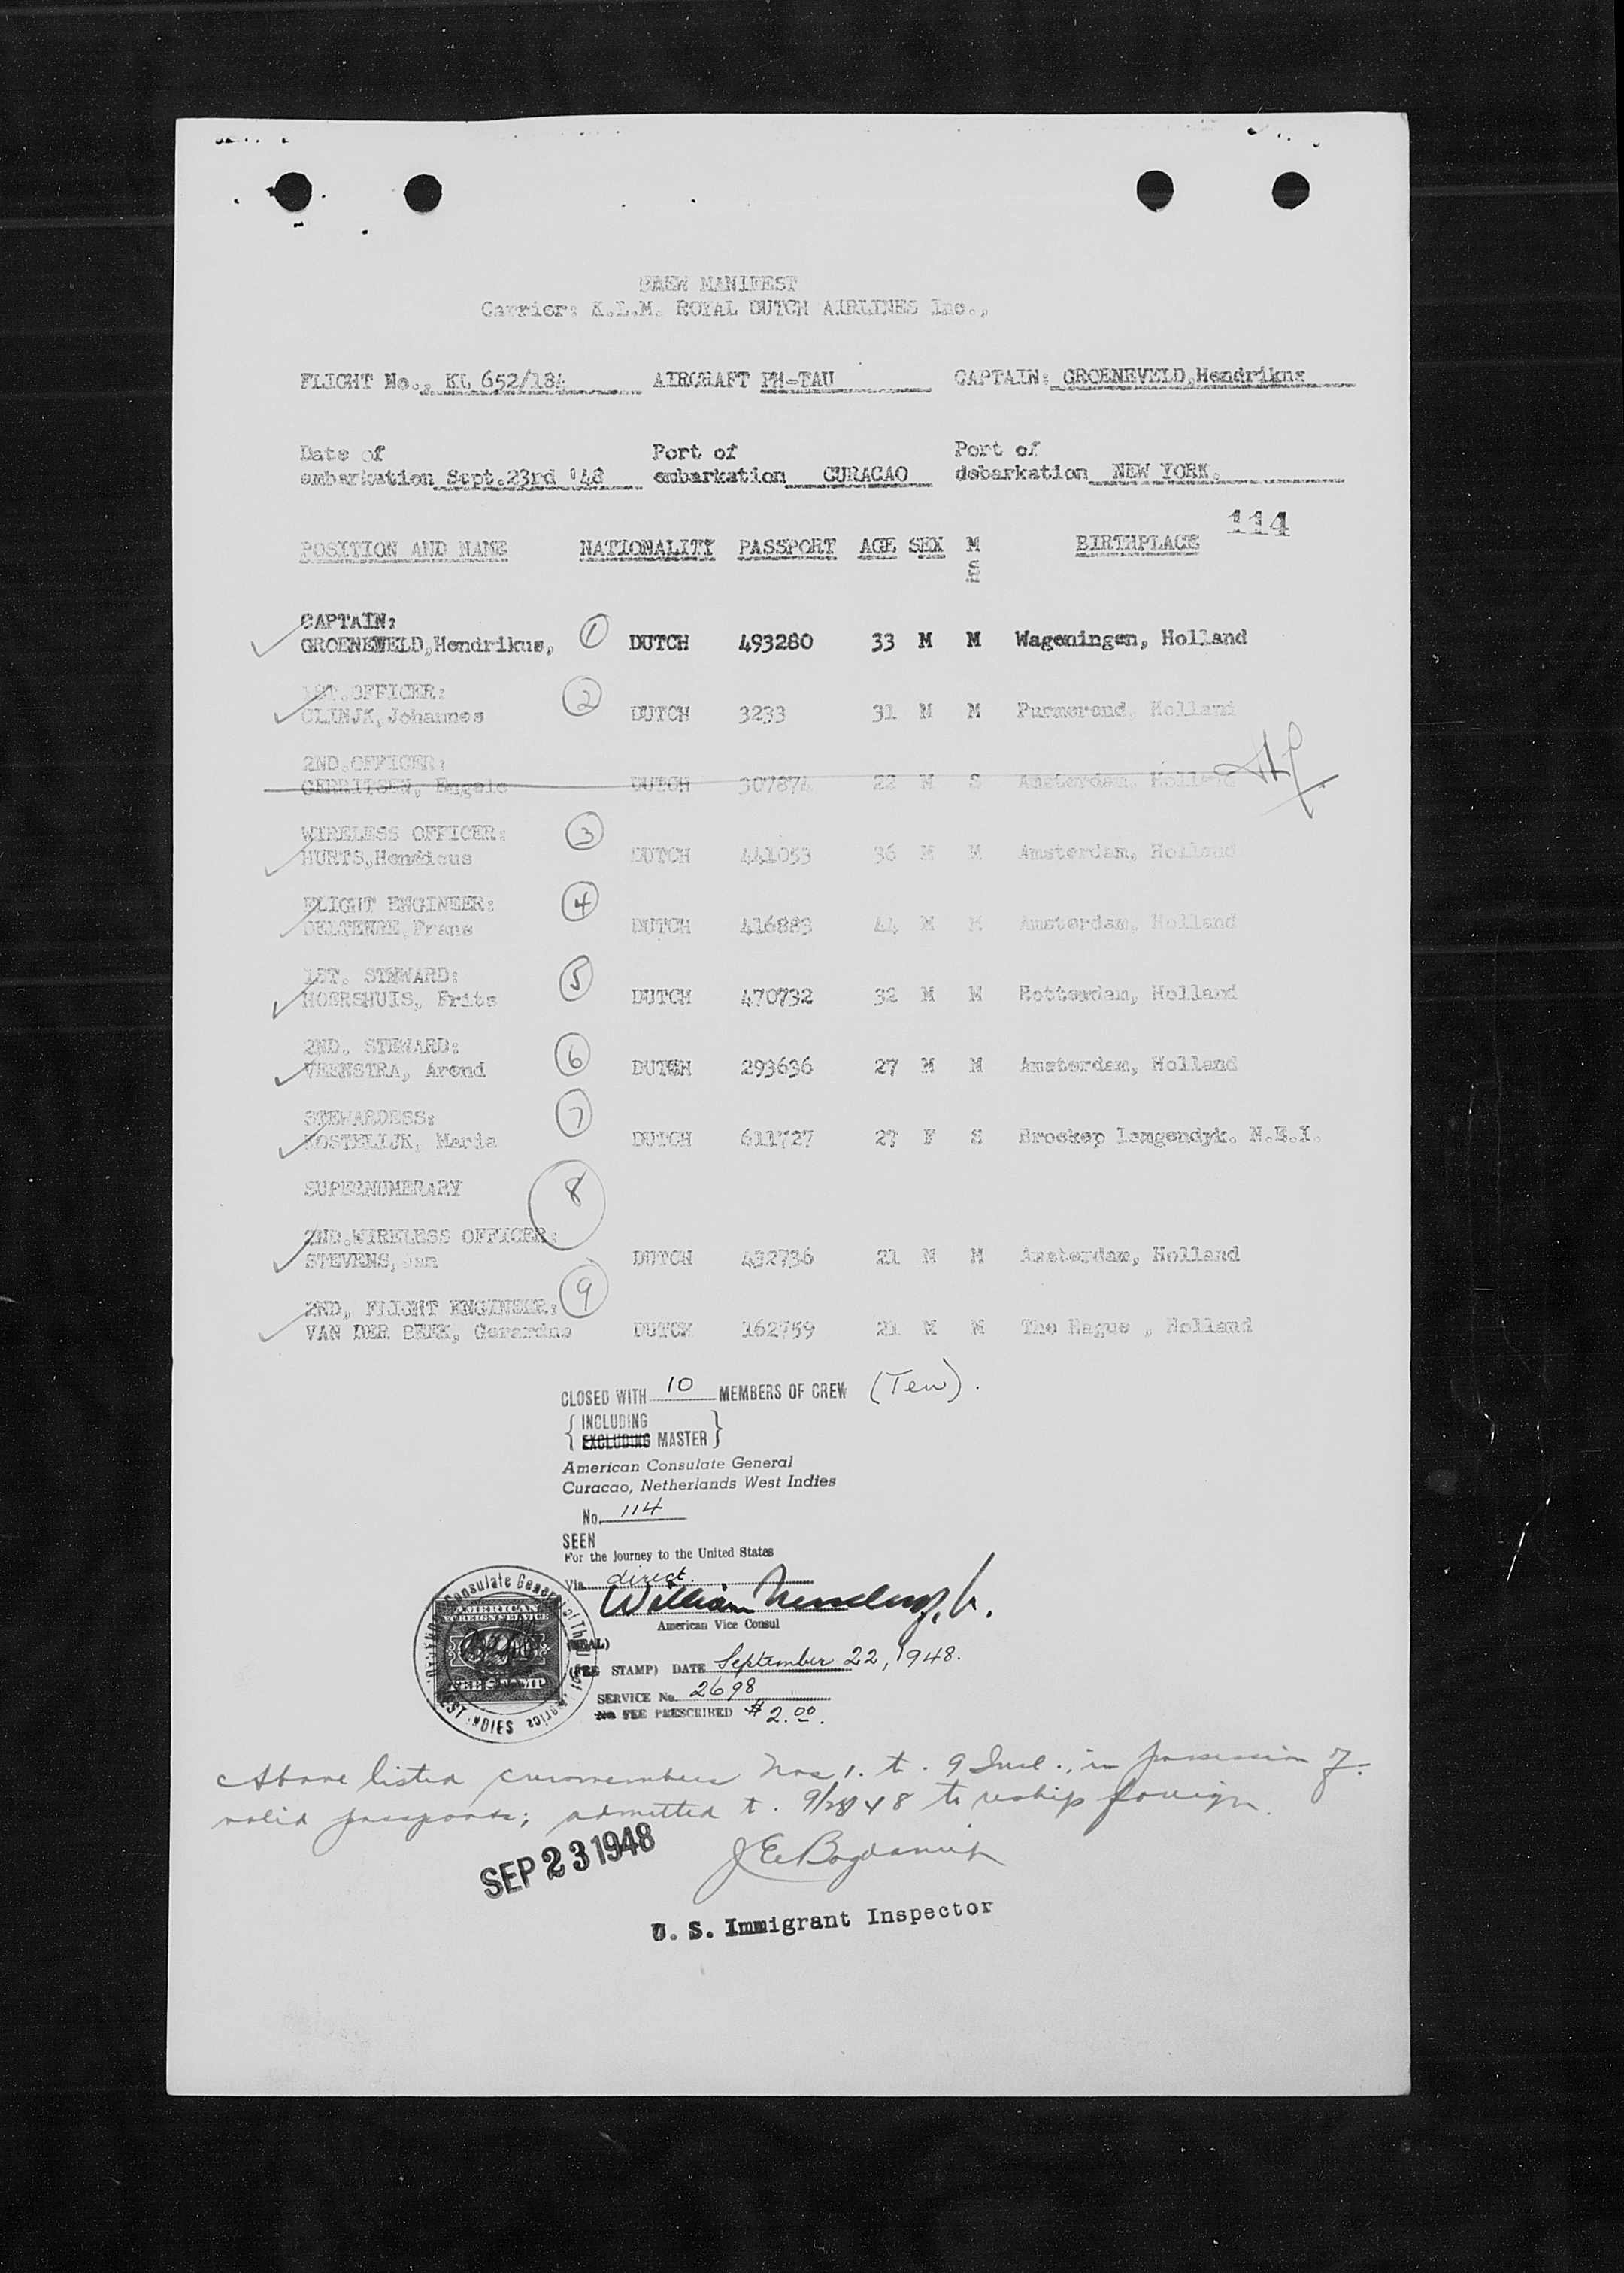 CREW MANIFEST
Carrier: K.L.M. ROYAL DUTCH AIRLINES Inc.,
FLIGHT No., KL 652/184 AIRCRAFT PH-TAU CAPTAIN: GROENEVELD,Hendrikus
Date of Port of Port of
embarkation Sept.23rd '48 embarkation CURACAO debarkation NEW YORK.
114
POSITION AND NAME NATIONALITY PASSPORT AGE SEX M BIRTHPLACE
S
CAPTAIN:
GROENEWELD,Hendrikus, 1 DUTCH 493280 33 M M Wageningen, Holland
1ST.OFFICER:
Johannes 2 DUTCH 3233 31 M M Purmerend, Holland
2ND.OFFICER:
GERRITSEN, DUTCH 307874 22 M S Amsterdam, Holland
WIRELESS OFFICER:
HURTS, 3 DUTCH 441053 36 M M Amsterdam, Holland
FLIGHT ENGINEER:
Frans 4 DUTCH 416883 44 M M Amsterdam, Holland
1ST. STEWARD:
Frits 5 DUTCH 470732 32 M M Rotterdam, Holland
2ND. STEWARD:
VEENSTRA, Arend 6 DUTCH 293636 27 M M Amsterdam, Holland
STEWARDESS:
Maria 7 DUTCH 611727 27 F S N.E.I.
SUPERNUMERARY 8
2ND.WIRELESS OFFICER:
STEVENS,Jan DUTCH 432736 21 M M Amsterdam, Holland
2ND, FLIGHT ENGINEER: 9
VAN DER BERK, DUTCH 162759 21 M M The Hague , Holland
CLOSED WITH 10 MEMBERS OF CREW (Ten).
INCLUDING
EXCLUDING MASTER
American Consulate General
Curacao, Netherlands West Indies
No. 114
SEEN
For the journey to the United States
Via direct.
William
American Vice Consul
(SEAL)
(FEE STAMP) DATE September 22, 1948.
SERVICE No. 2698
No FEE PRESCRIBED $2.00.
AMERICAN
FOREIGN SERVICE
FEE STAMP
Above listed crewmembers Nos 1. to. 9 Incl., in possession of
valid passports; admitted to 48 to reship foreign.
SEP 23 1948
U. S. Immigrant Inspector